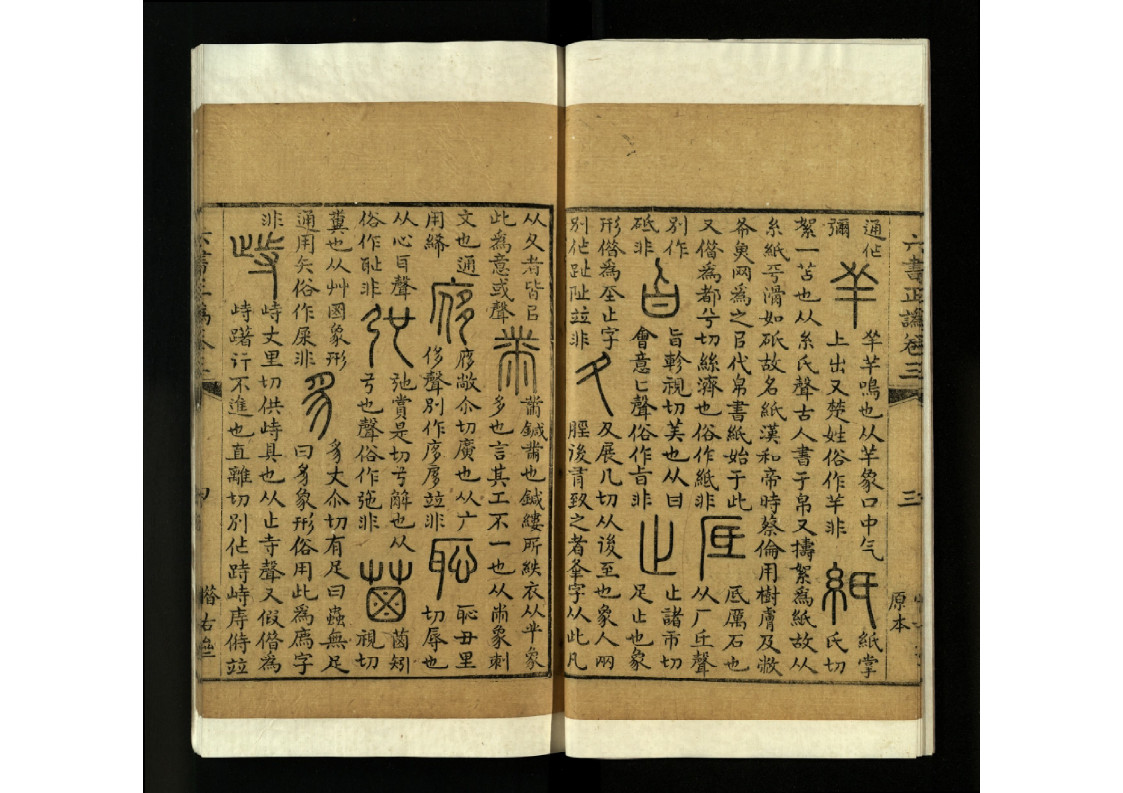 六書正譌卷三
三
原本
通作
彌
芈
芈芊鳴也从芊象口中气
上出又楚姓俗作羊非
紙
紙掌
氏切
絮一苫也从糸氏聲古人書于帛又擣絮爲紙故从
糸紙平滑如砥故名紙漢和帝時蔡倫用樹膚及敝
布臭网爲之㠯代帛書紙始于此
又借爲都兮切絲濟也俗作紙非
厎
厎厲石也
从厂氐聲
別作
砥非
旨
旨軫視切美也从曰
會意匕聲俗作㫖非
止
止諸市切
足止也象
形借爲至止字
別作趾阯並非
夂
夂展几切从後至也象人兩
脛後有致之者夆字从此凡
从夂者皆㠯
此爲意或聲
黹
黹鍼黹也鍼縷所紩衣从半象
多也言其工不一也从㡀象刺
文也通
用絺
㢋
㢋敞尒切廣也从广
侈聲別作㢋㢋並非
恥
恥丑里
切辱也
从心耳聲
俗作耻非
弛
弛賞是切弓解也从
弓也聲俗作㢮非
𦳊
𦳊矧
視切
糞也从艸囷象形
通用矢俗作屎非
豸
豸丈尒切有足曰蟲無足
曰豸象形俗用此爲廌字
非
峙
峙丈里切供峙具也从止寺聲又假借爲
峙躇行不進也直離切別作跱峙庤偫並
四